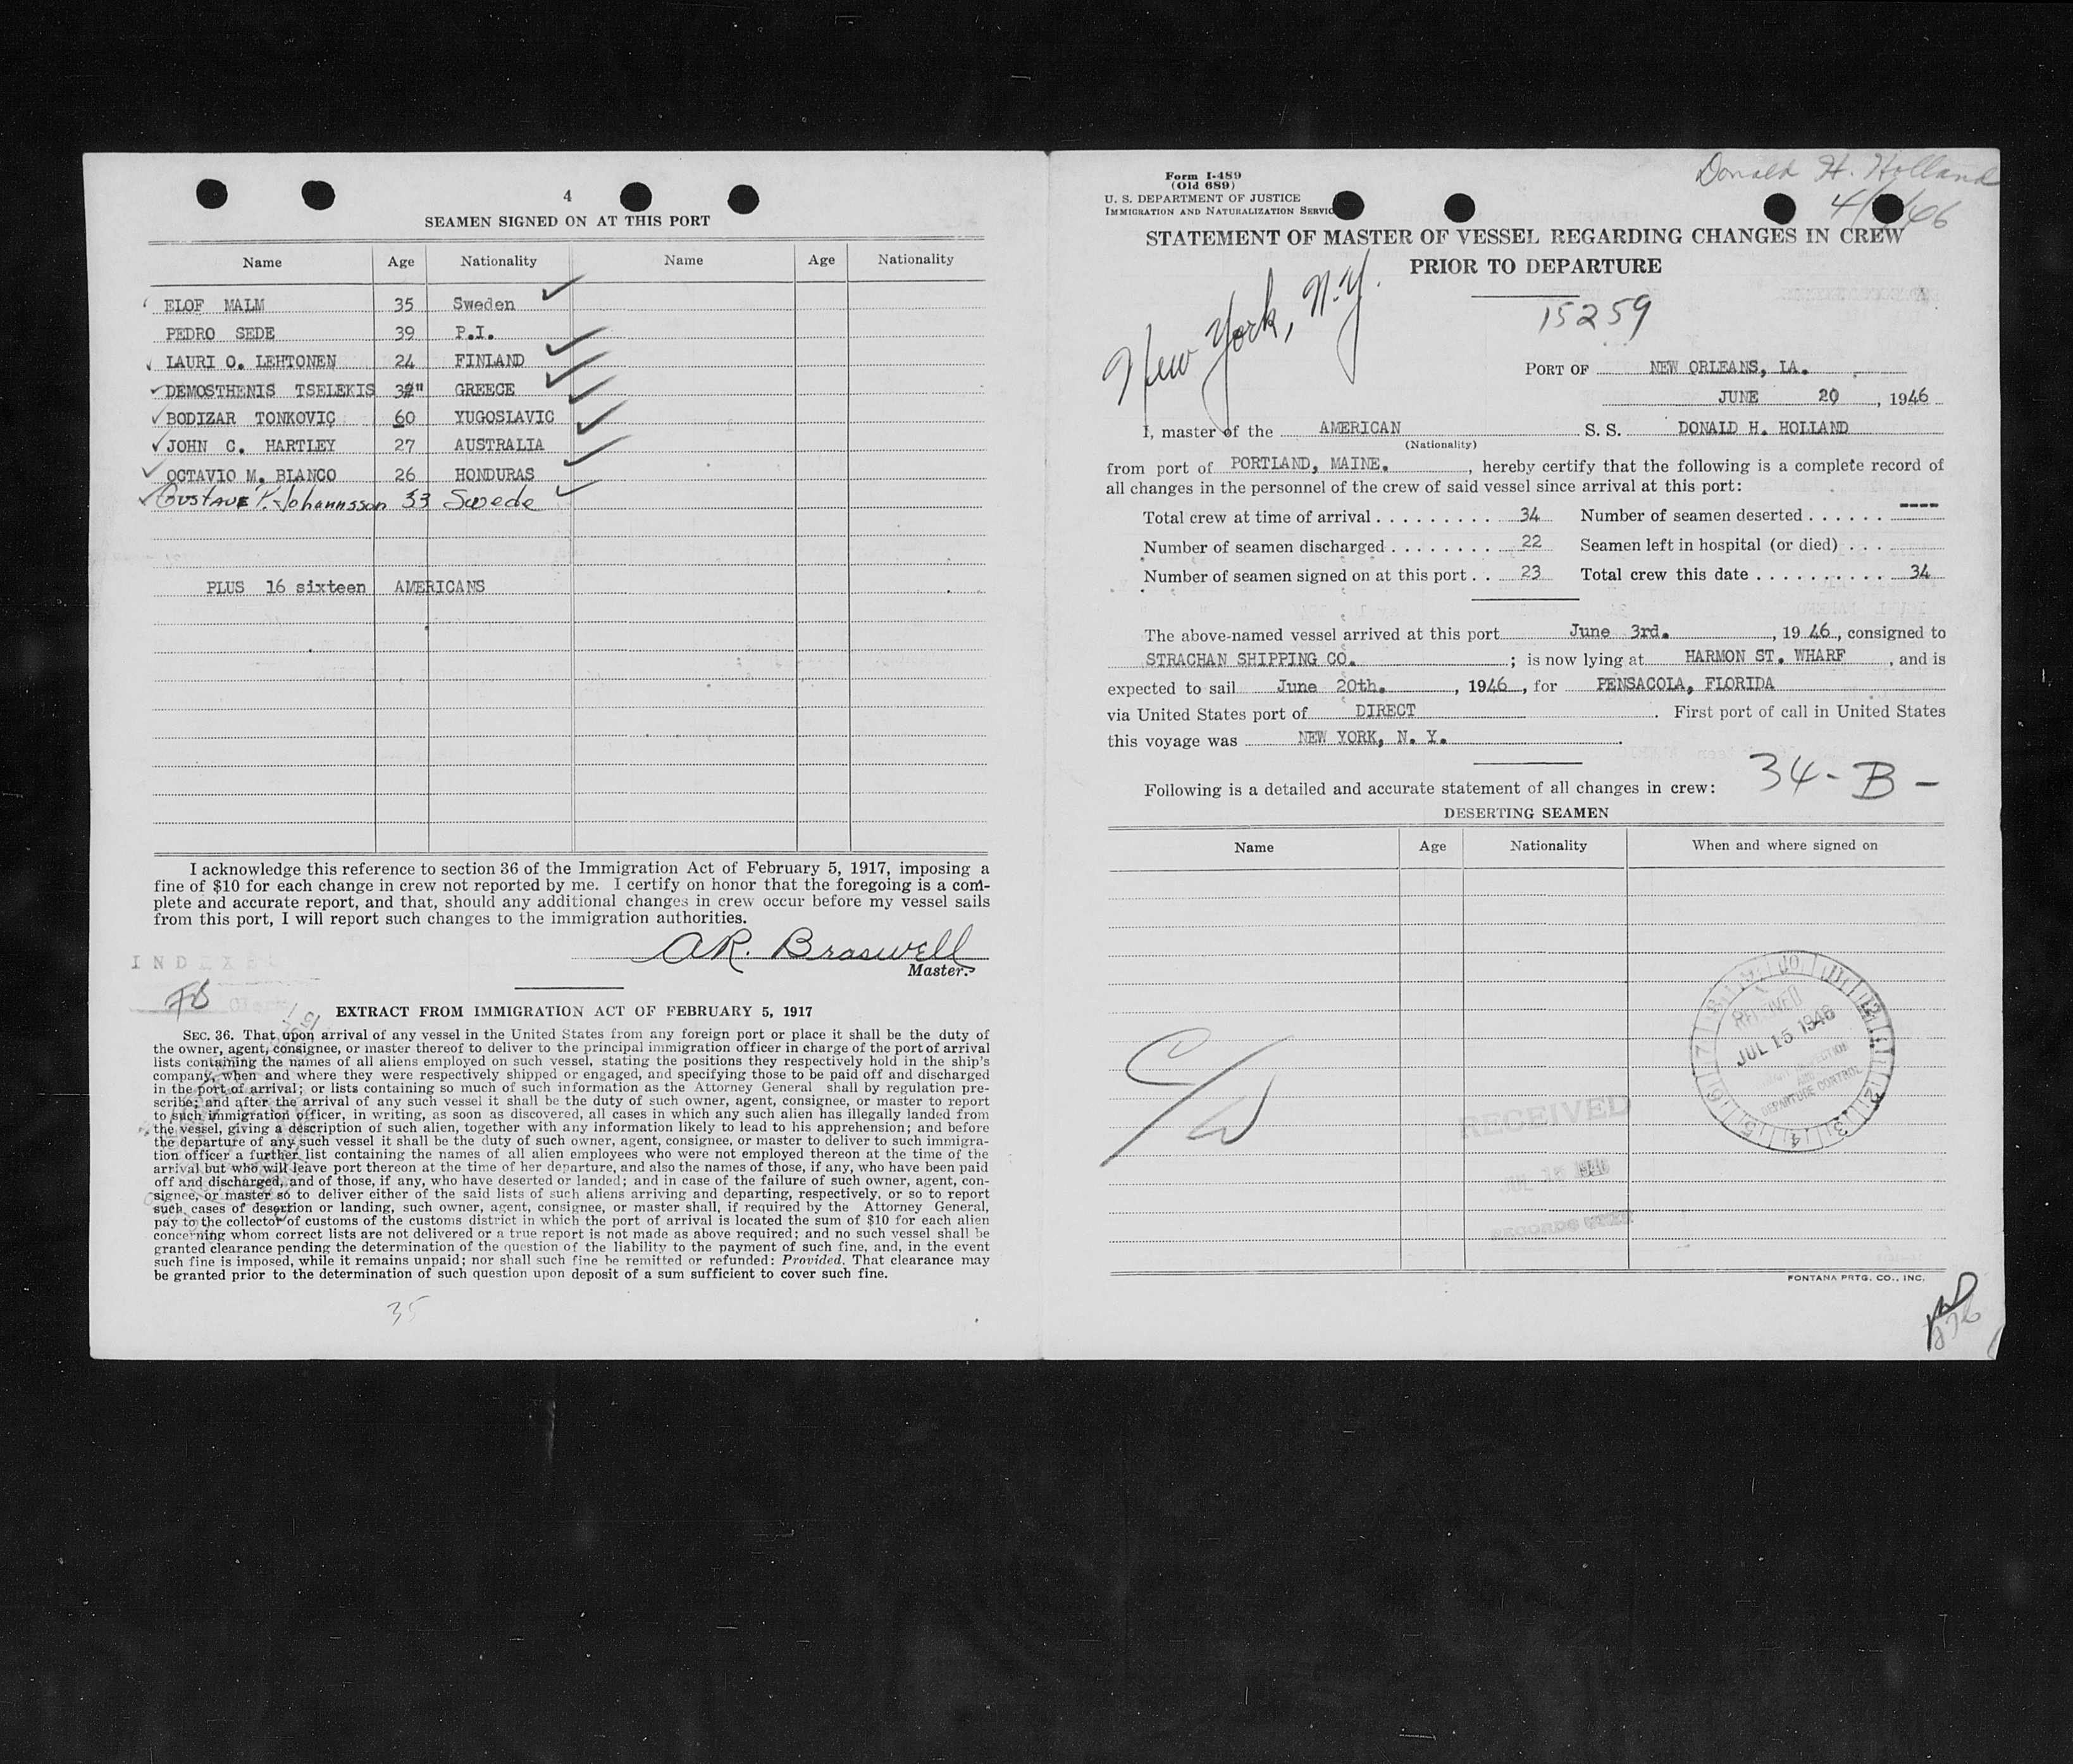 4
SEAMEN SIGNED ON AT THIS PORT
Name Age Nationality Name Age Nationality
ELOF MALM 35 Sweden
PEDRO SEDE 39 P.I.
LAURI O. LEHTONEN 24 FINLAND
DEMOSTHENIS TSELEKIS GREECE
BODIZAR TONKOVIC 60 YUGOSLAVIC
JOHN C. HARTLEY 27 AUSTRALIA
OCTAVIO M. BLANCO 26 HONDURAS
Gustave P. Johannsson 33 Swede
PLUS 16 sixteen AMERICANS
I acknowledge this reference to section 36 of the Immigration Act of February 5, 1917, imposing a
fine of $10 for each change in crew not reported by me. I certify on honor that the foregoing is a com-
plete and accurate report, and that, should any additional changes in crew occur before my vessel sails
from this port, I will report such changes to the immigration authorities.
AR. Braswell
Master.
INDEXED
EXTRACT FROM IMMIGRATION ACT OF FEBRUARY 5, 1917
SEC. 36. That upon arrival of any vessel in the United States from any foreign port or place it shall be the duty of
the owner, agent, consignee, or master thereof to deliver to the principal immigration officer in charge of the port of arrival
lists containing the names of all aliens employed on such vessel, stating the positions they respectively hold in the ship's
company, when and where they were respectively shipped or engaged, and specifying those to be paid off and discharged
in the port of arrival; or lists containing so much of such information as the Attorney General shall by regulation pre-
scribe; and after the arrival of any such vessel it shall be the duty of such owner, agent, consignee, or master to report
to such immigration officer, in writing, as soon as discovered, all cases in which any such alien has illegally landed from
the vessel, giving a description of such alien, together with any information likely to lead to his apprehension; and before
the departure of any such vessel it shall be the duty of such owner, agent, consignee, or master to deliver to such immigra-
tion officer a further list containing the names of all alien employees who were not employed thereon at the time of the
arrival but who will leave port thereon at the time of her departure, and also the names of those, if any, who have been paid
off and discharged, and of those, if any, who have deserted or landed; and in case of the failure of such owner, agent, con-
signee, or master so to deliver either of the said lists of such aliens arriving and departing, respectively, or so to report
such cases of desertion or landing, such owner, agent, consignee, or master shall, if required by the Attorney General,
pay to the collector of customs of the customs district in which the port of arrival is located the sum of $10 for each alien
concerning whom correct lists are not delivered or a true report is not made as above required; and no such vessel shall be
granted clearance pending the determination of the question of the liability to the payment of such fine, and, in the event
such fine is imposed, while it remains unpaid; nor shall such fine be remitted or refunded: Provided, That clearance may
be granted prior to the determination of such question upon deposit of a sum sufficient to cover such fine.
35
Donald H. Holland
Form I-489
(Old 689)
U. S. DEPARTMENT OF JUSTICE
IMMIGRATION AND NATURALIZATION SERVIC
STATEMENT OF MASTER OF VESSEL REGARDING CHANGES IN CREW
PRIOR TO DEPARTURE
New York, N.Y.
15259
PORT OF NEW ORLEANS, LA.
JUNE 20, 1946
I, master of the AMERICAN S. S. DONALD H. HOLLAND
(Nationality)
from port of PORTLAND, MAINE., hereby certify that the following is a complete record of
all changes in the personnel of the crew of said vessel since arrival at this port:
Total crew at time of arrival . . . . . . . . . . 34 Number of seamen deserted . . . . . . ----
Number of seamen discharged . . . . . . . . 22 Seamen left in hospital (or died) . . .
Number of seamen signed on at this port . . 23 Total crew this date . . . . . . . . . . 34
The above-named vessel arrived at this port June 3rd., 1946, consigned to
STRACHAN SHIPPING CO. ; is now lying at HARMON ST. WHARF, and is
expected to sail June 20th., 1946, for PENSACOLA, FLORIDA
via United States port of DIRECT. First port of call in United States
this voyage was NEW YORK, N. Y.
34-B-
Following is a detailed and accurate statement of all changes in crew:
DESERTING SEAMEN
Name Age Nationality When and where signed on
RECEIVED
JUL 15 1946
DEPARTURE CONTROL
RECEIVED
JUL 15 1946
FONTANA PRTG. CO., INC.